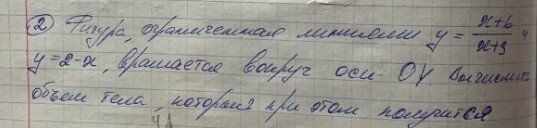 ② Фигура, ограниченная линиями y = x+6/x+3 и
y=2-x, вращается вокруг оси OY. Вычислить
объем тела, которая при этом получится